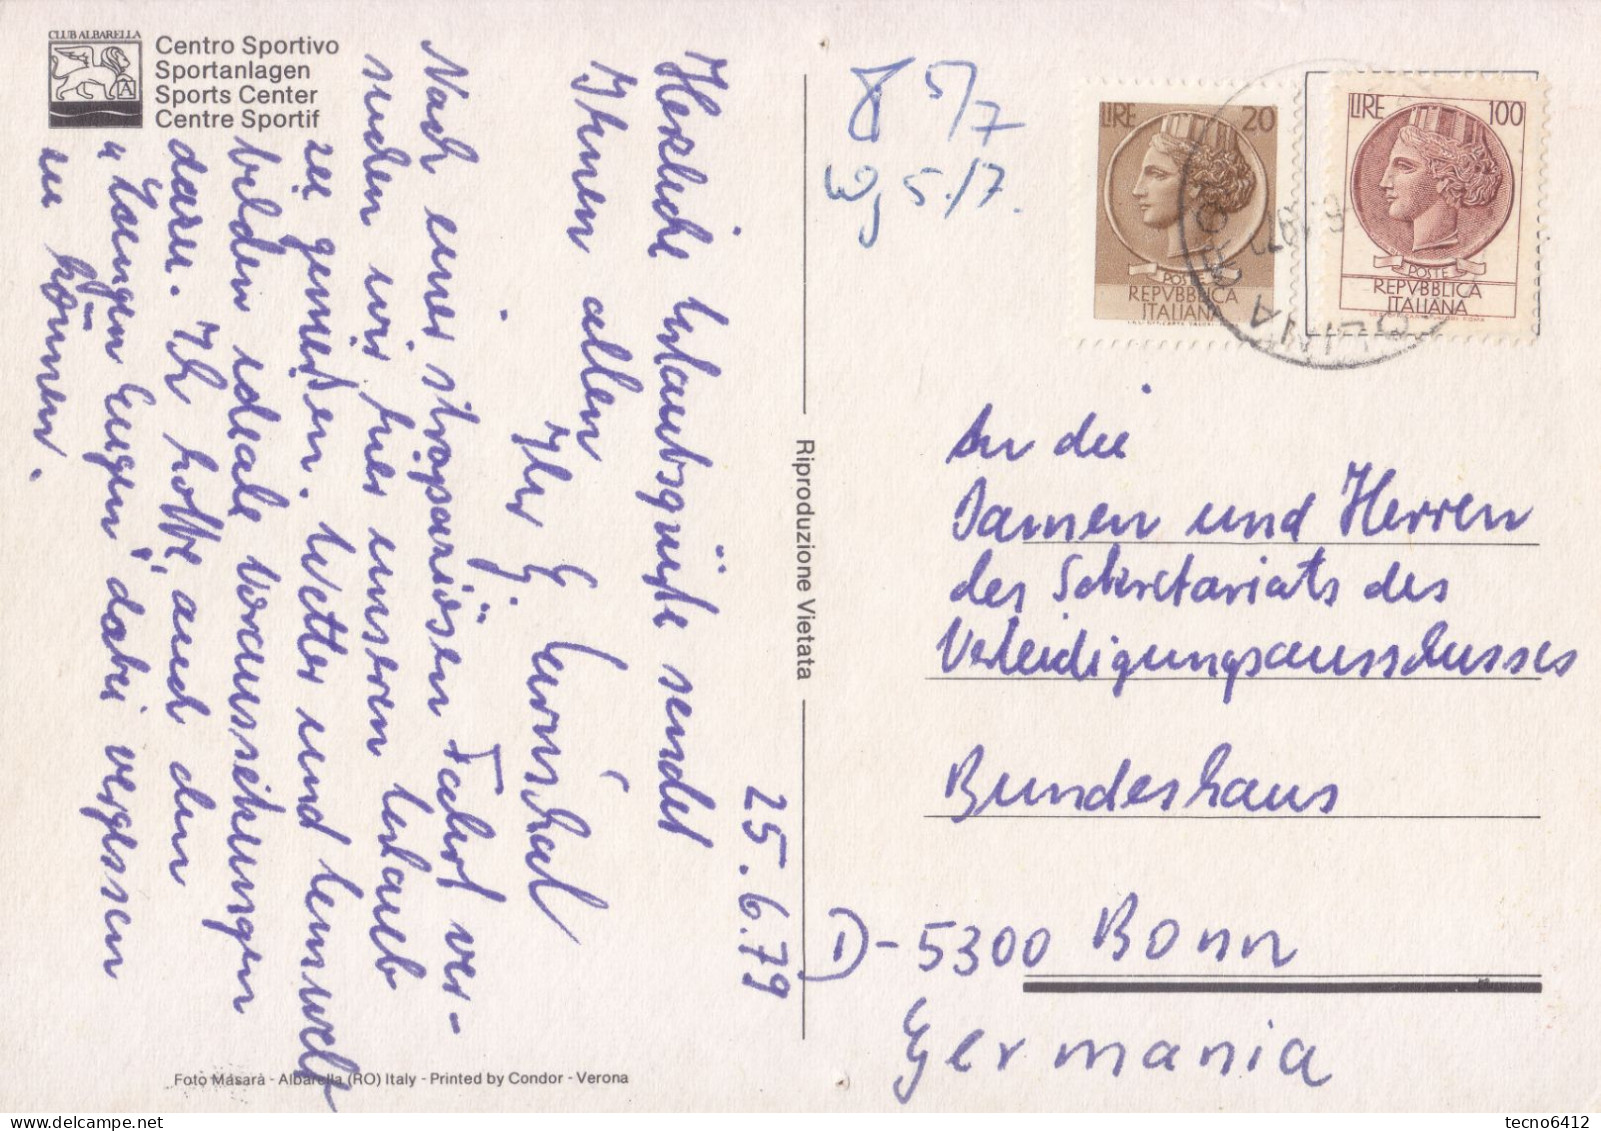 CLUB ALBARELLA
Centro Sportivo
Sportanlagen
Sports Center
Centre Sportif
25.6.79
Herzliche Urlaubsgrüße sendet
Ihnen allen
Ihr G.
Nach einer strapaziösen Fahrt ver-
suchen wir hier unseren Urlaub
zu genießen. Wetter und Umwelt
bilden ideale Voraussetzungen
dazu. Ich hoffe, auch den
"Langen Eugen" dabei vergessen
zu können.
Foto Masarà - Albarella (RO) Italy - Printed by Condor - Verona
Riproduzione Vietata
5/7
5./7.
LIRE 20
POSTE
REPVBBLICA
ITALIANA
LIRE 100
POSTE
REPVBBLICA
ITALIANA
An die
Damen und Herren
des Sekretariats des
Verteidigungsausschusses
Bundeshaus
D-5300 Bonn
Germania
tecno6412